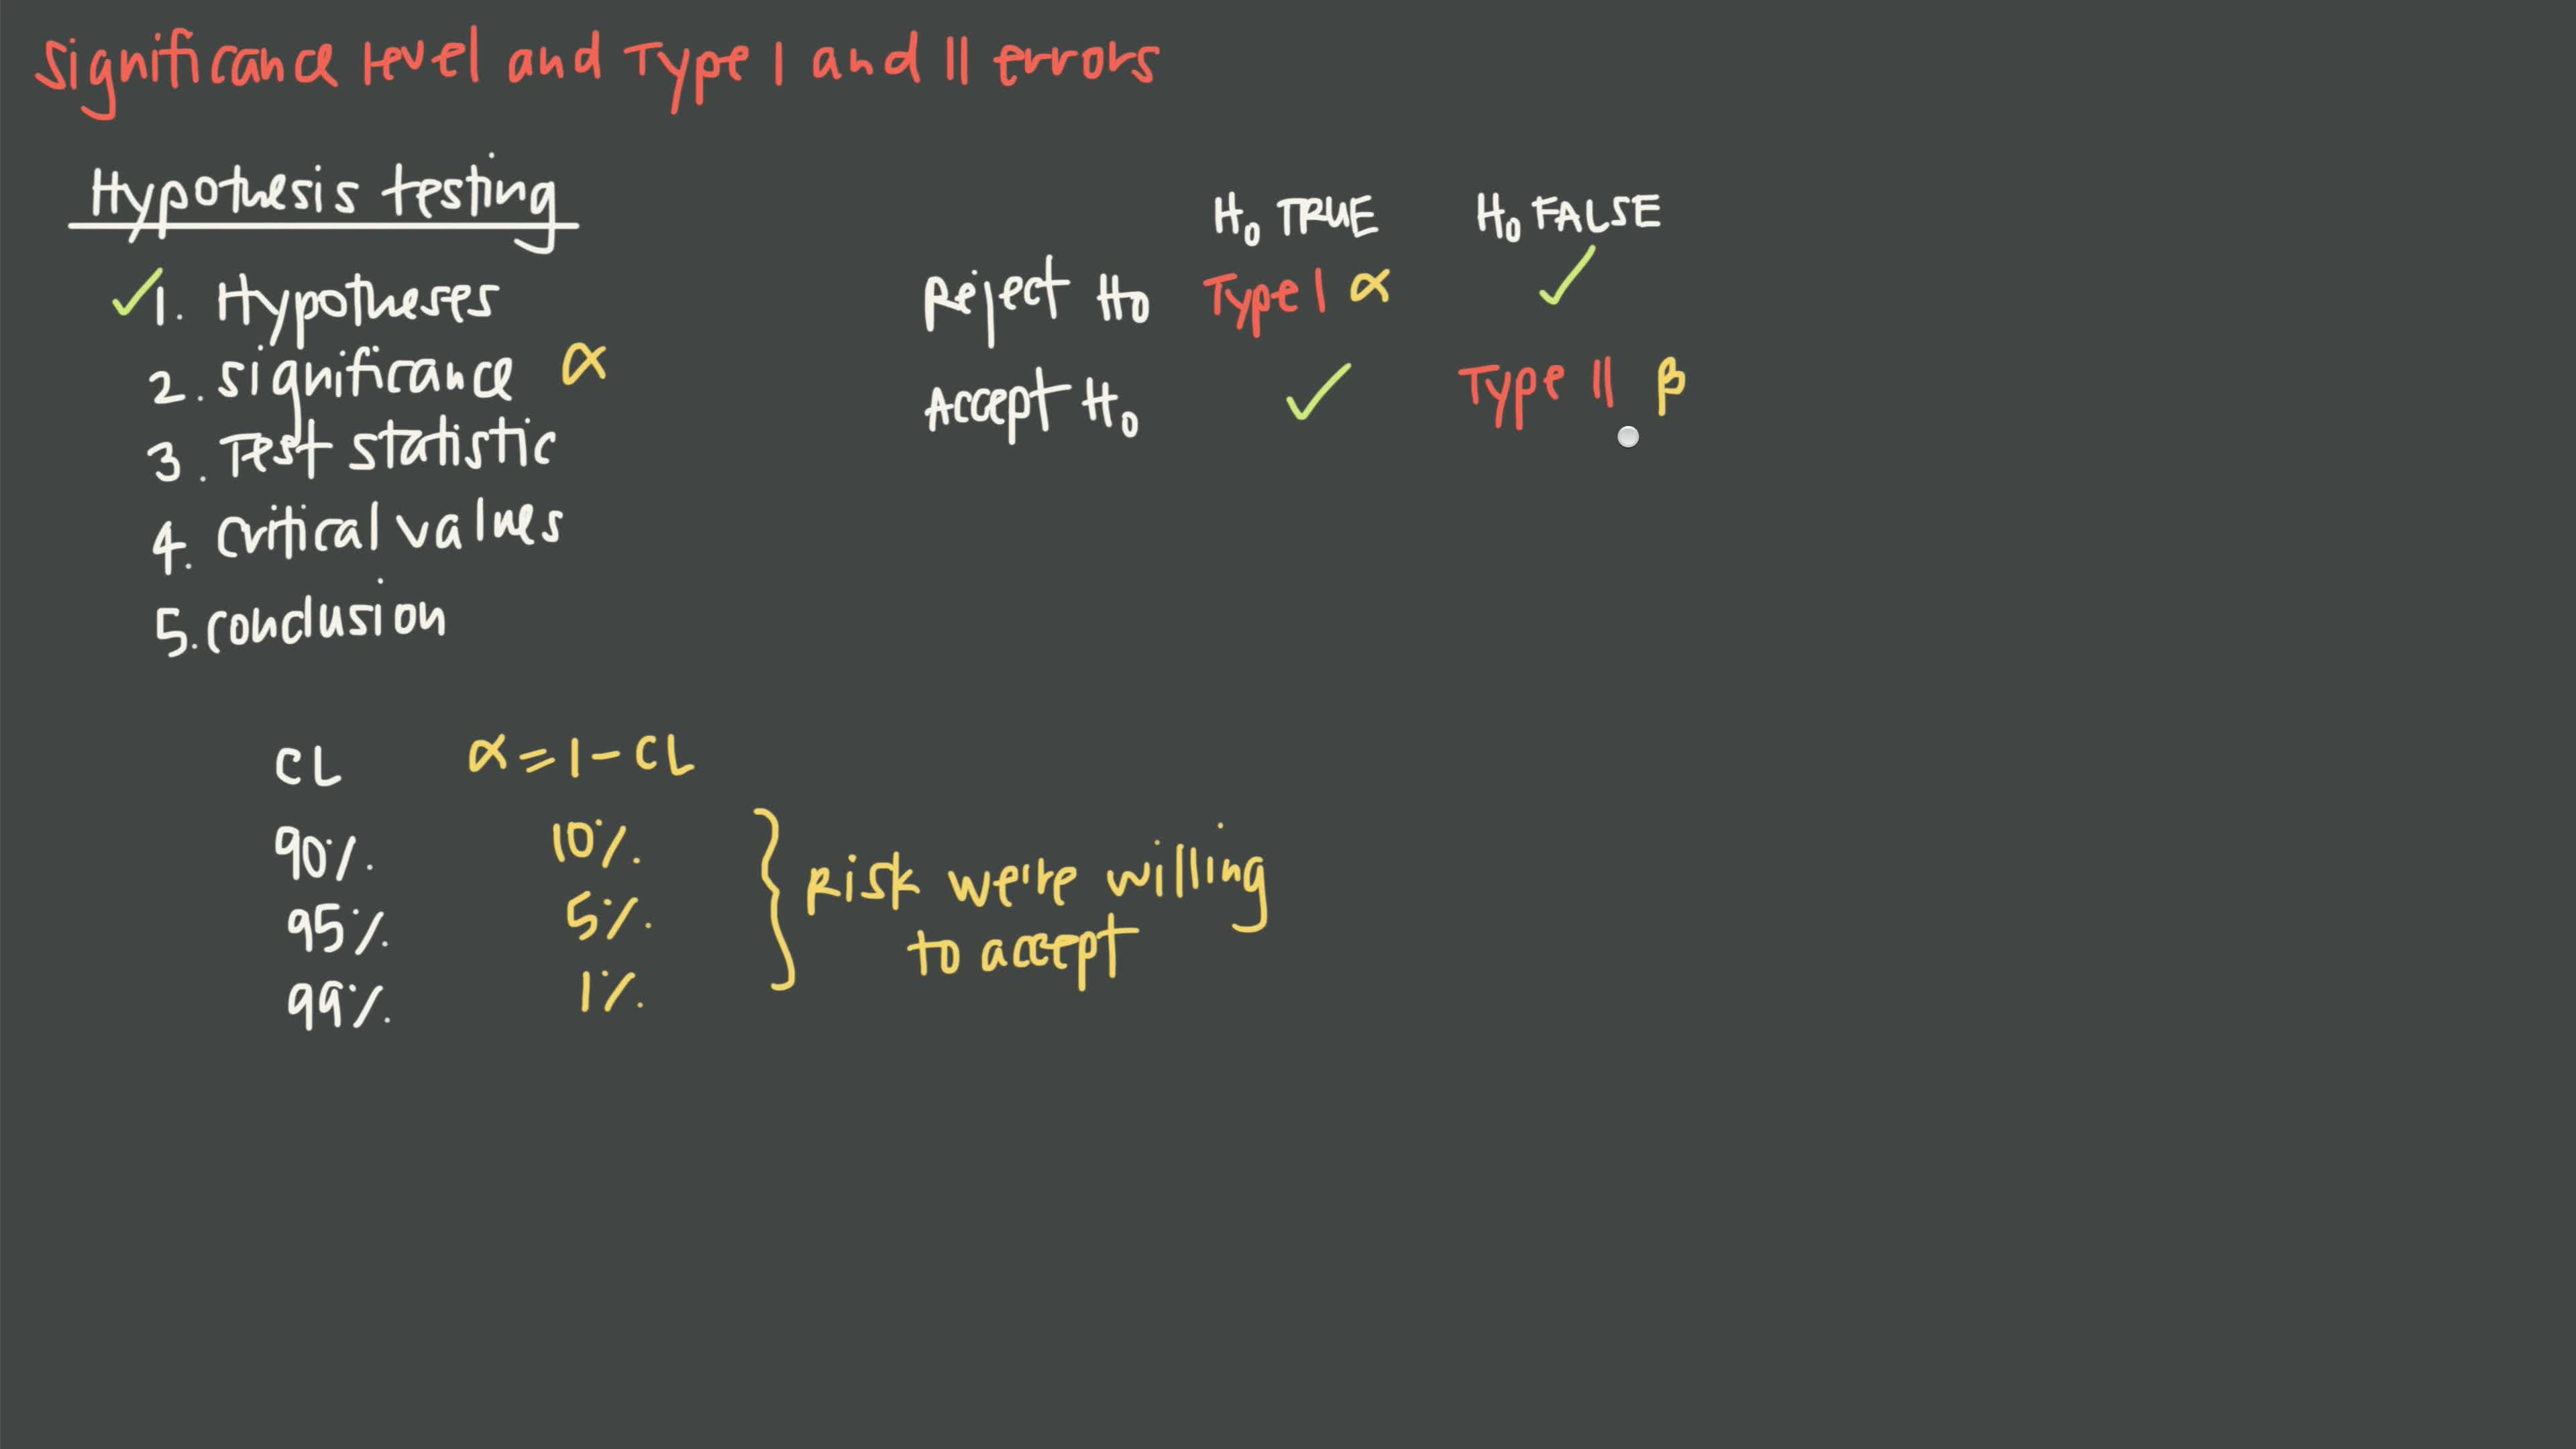 Significance level and Type I and II errors
Hypothesis testing
✓1. Hypotheses
2. significance α
3. Test statistic
4. critical values
5. conclusion
H₀ TRUE H₀ FALSE
Reject H₀ Type I α ✓
Accept H₀ ✓ Type II β
CL α = 1 - CL
90% 10%
95% 5%
99% 1%
} Risk we're willing
to accept